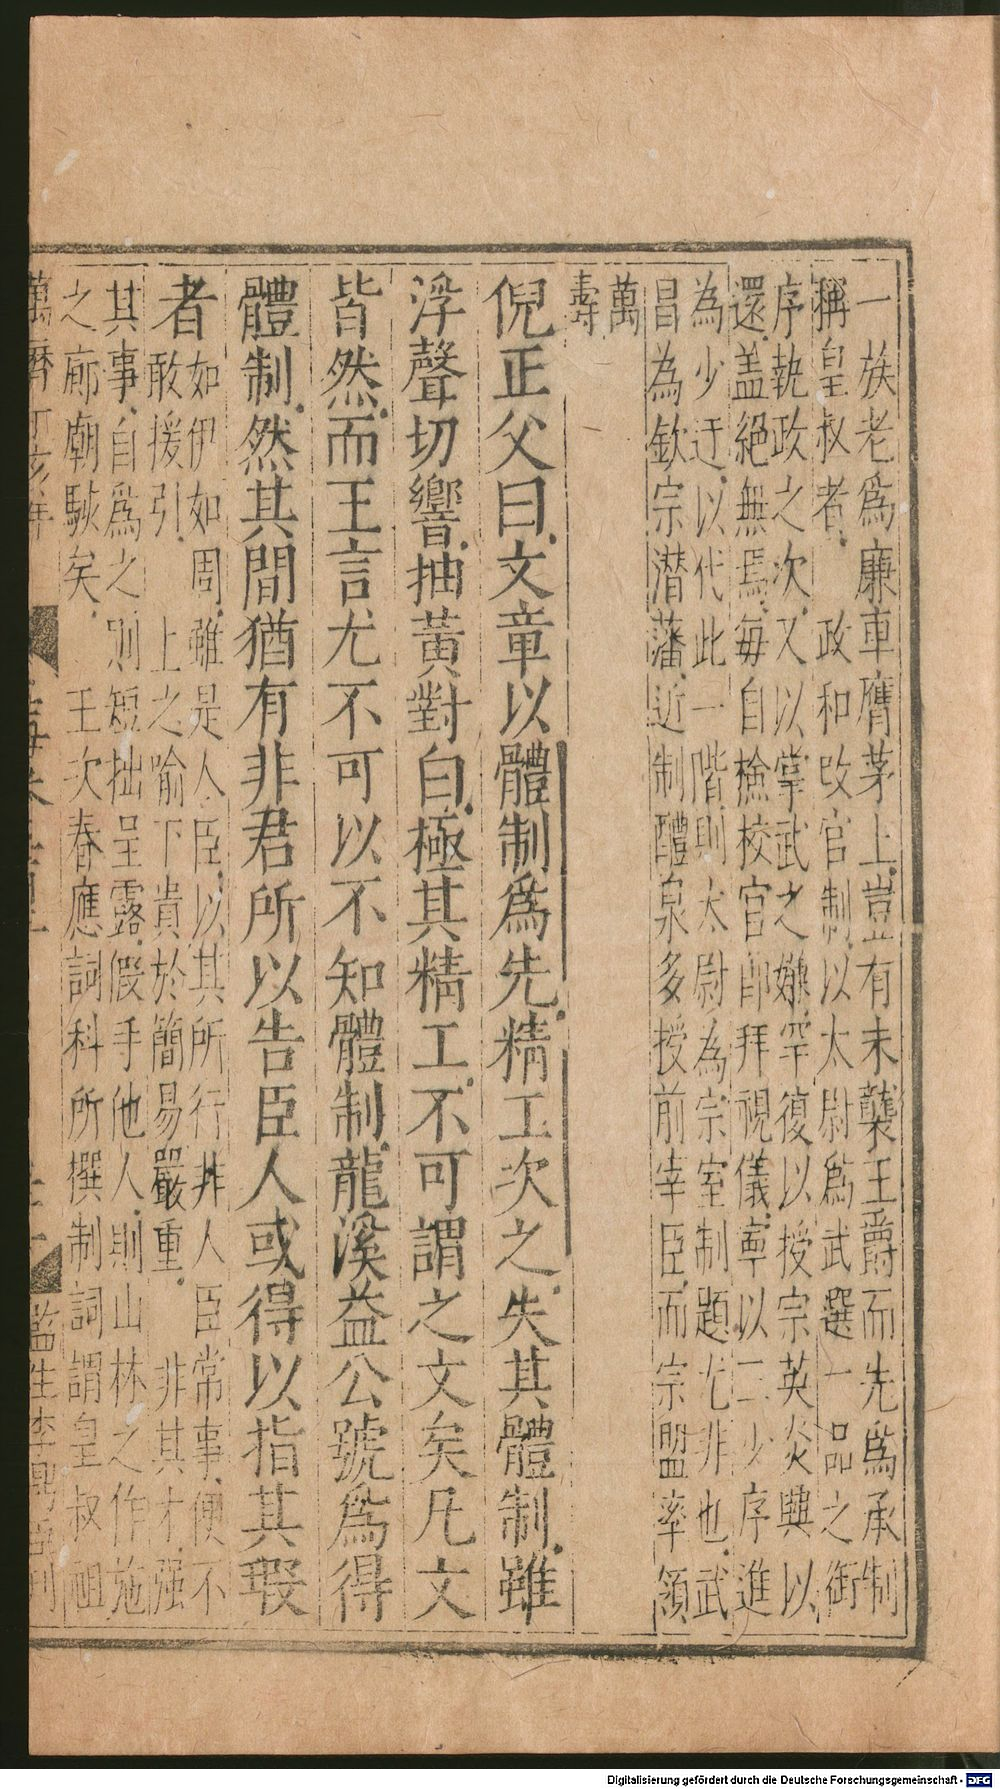 一族老爲廉車膺茅上豈有未襲王爵而先爲承制
稱皇叔者政和改官制以太尉爲武選一品之銜
序執政之次又以掌武之嫌罕復以授宗英炎興以
還盖絕無焉每自檢校官即拜視儀辜以二少序進
為少迂以代此一階則太尉為宗室制題尤非也武
昌為欽宗潜藩近制醴泉多授前宰臣而宗盟率領
萬
壽
倪正父曰文章以體制爲先精工次之失其體制雖
浮聲切響抽黃對白極其精工不可謂之文矣凡文
皆然而王言尤不可以不知體制龍溪益公號爲得
體制然其間猶有非君所以告臣人或得以指其瑕
者如伊如周雖是人臣以其所行非人臣常事便不
敢援引上之喻下貴於簡易嚴重非其才强
其事自爲之則短拙呈露假手他人則山林之作施
之廊廟駭矣王次春應詞科所撰制詞謂皇叔祖
萬曆丁亥年
監生李
刊
Digitalisierung gefördert durch die Deutsche Forschungsgemeinschaft - DFG